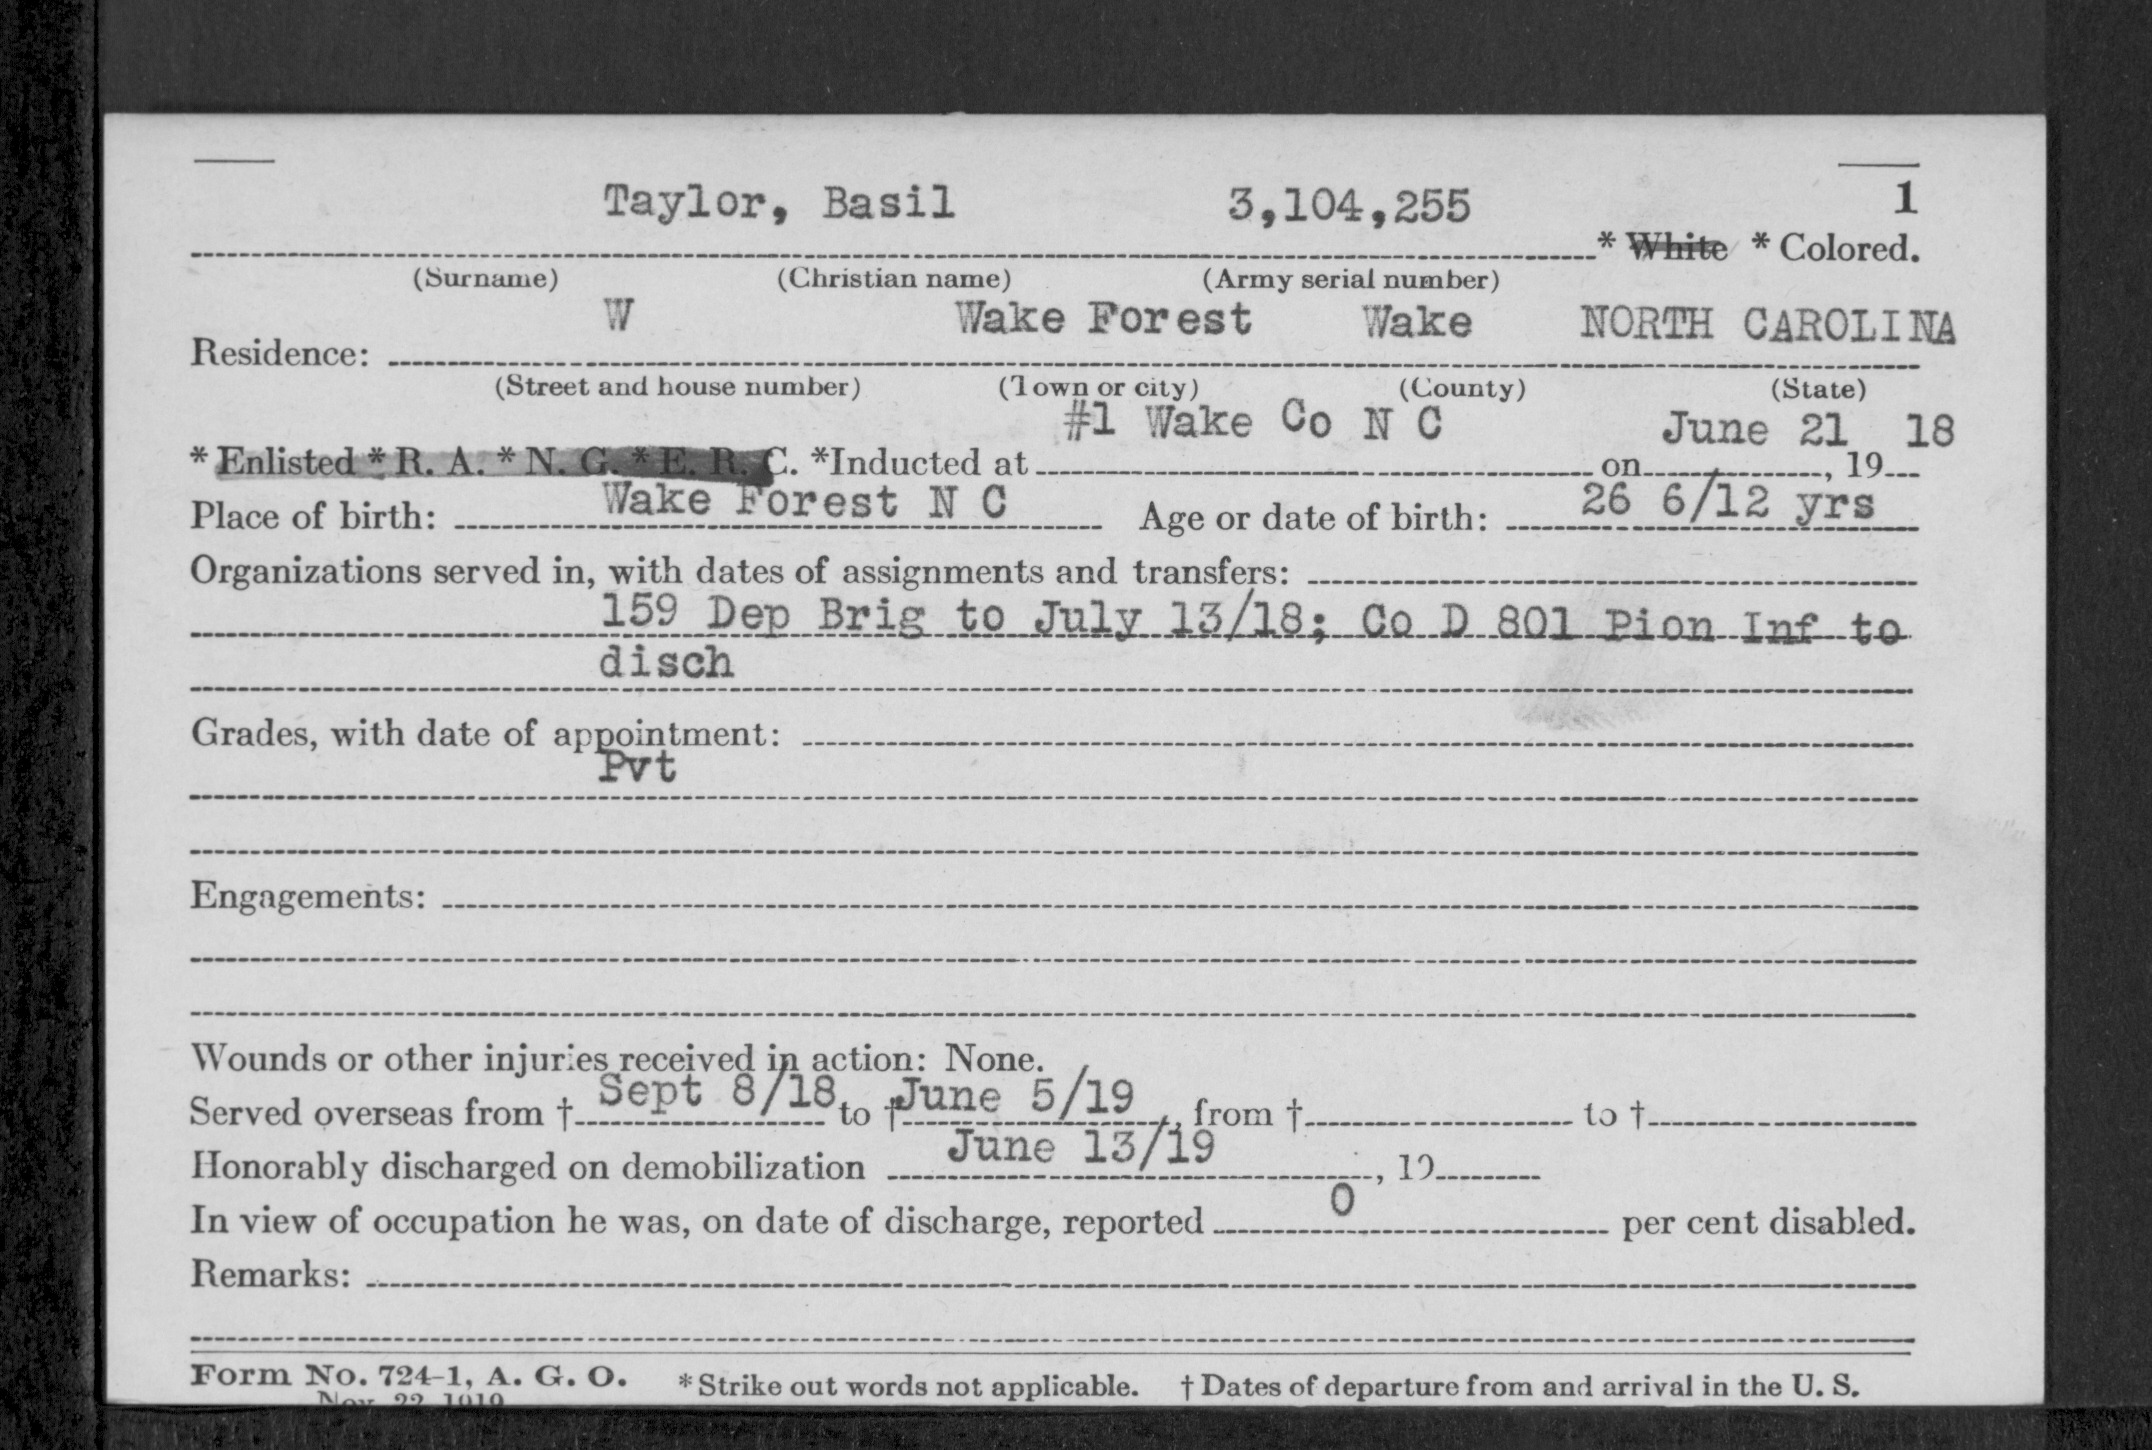 Taylor, Basil 3,104,255 1
* White * Colored.
(Surname) (Christian name) (Army serial number)
W Wake Forest Wake NORTH CAROLINA
Residence:
(Street and house number) (Town or city) (County) (State)
#1 Wake Co N C June 21 18
* Enlisted * R. A. * N. G. * E. R. C. *Inducted at on , 19
Wake Forest N C 26 6/12 yrs
Place of birth: Age or date of birth:
Organizations served in, with dates of assignments and transfers:
159 Dep Brig to July 13/18; Co D 801 Pion Inf to
disch
Grades, with date of appointment:
Pvt
Engagements:
Wounds or other injuries received in action: None.
Sept 8/18 June 5/19
Served overseas from † to † , from † to †
June 13/19
Honorably discharged on demobilization , 19
0
In view of occupation he was, on date of discharge, reported per cent disabled.
Remarks:
Form No. 724-1, A. G. O. *Strike out words not applicable. † Dates of departure from and arrival in the U. S.
Nov. 22, 1919